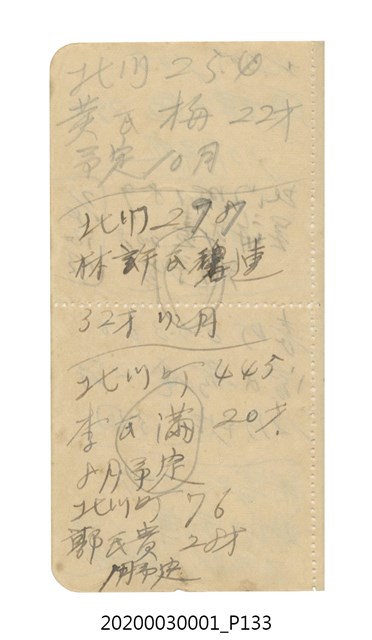 北川 250
黄氏梅 22才
予定 10月
北川 278
林許氏蓮
32才 12月
北川町 445
李氏滿 20才
8月予定
北川町 76
郭氏貴 28才
月予定
20200030001_P133